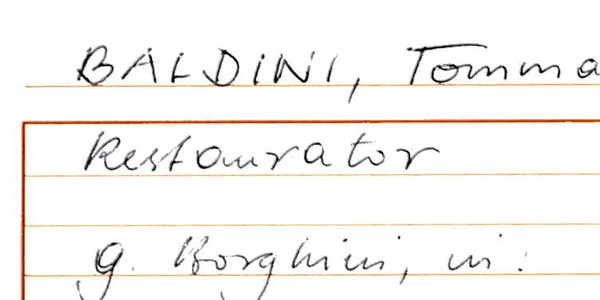 BALDINI, Tomma
Restaurator
g. Borghini, in: